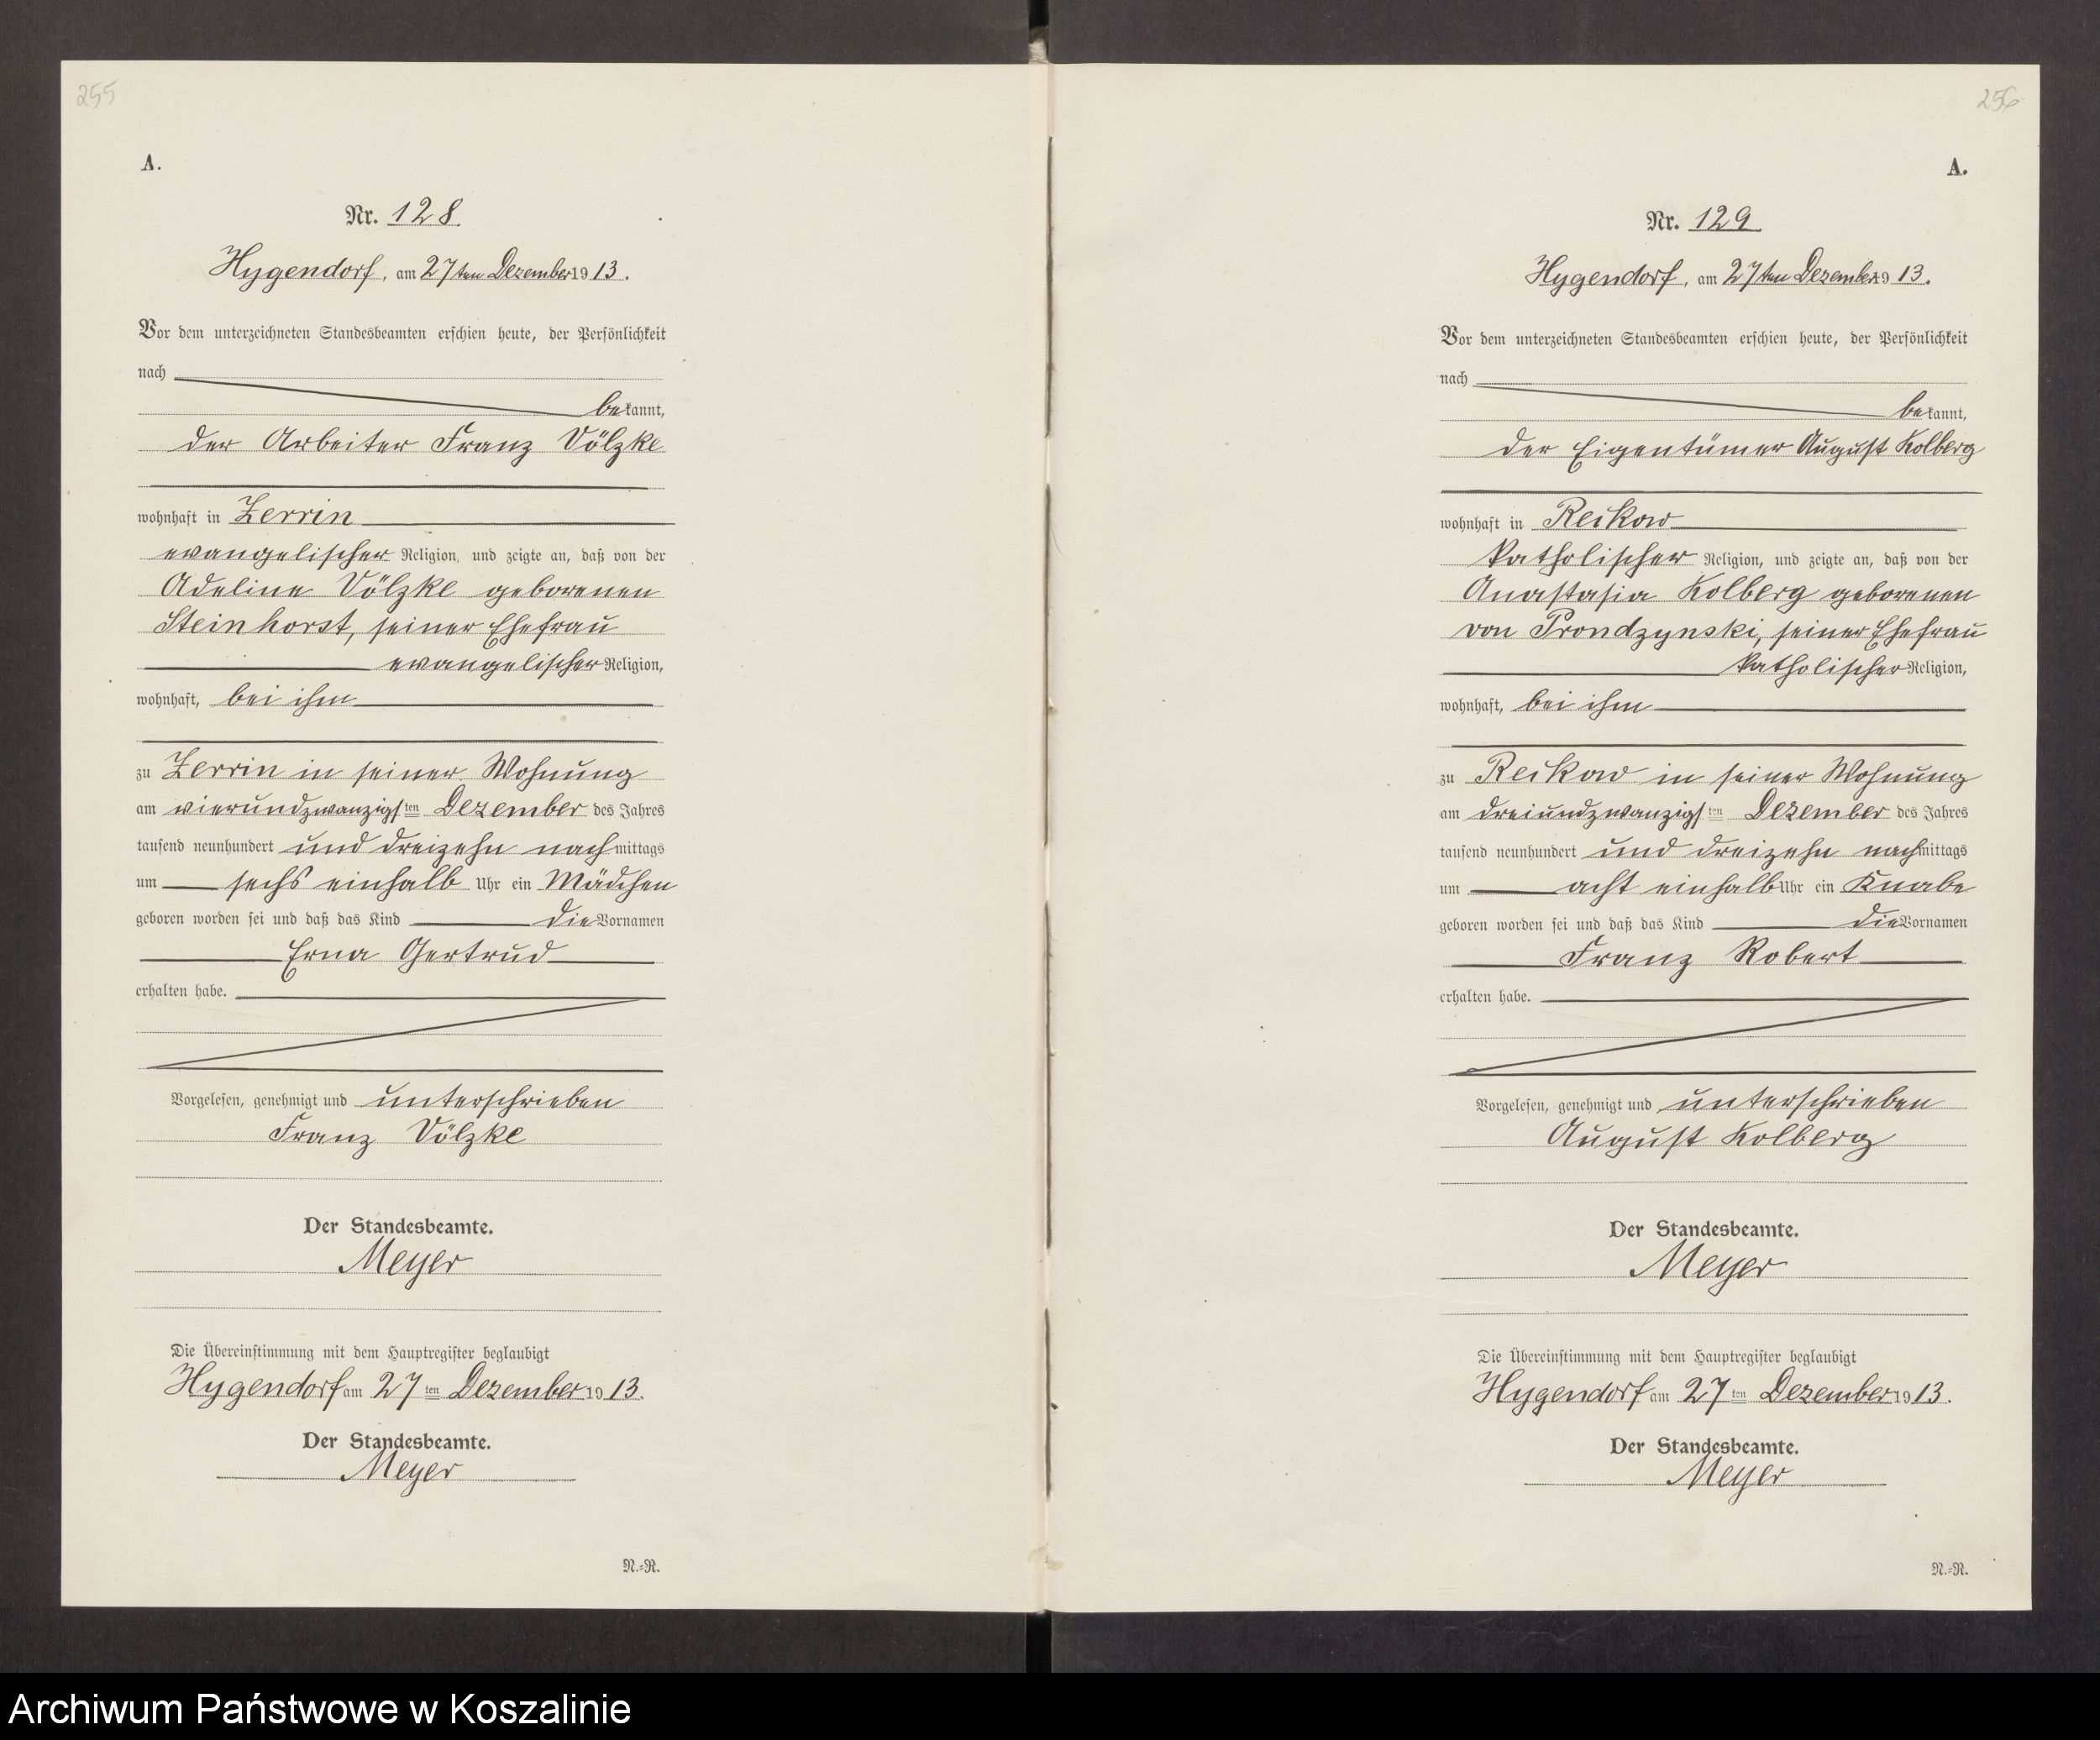 255
A.
Nr. 128.
Hygendorf, am 27ten Dezember 1913.
Vor dem unterzeichneten Standesbeamten erschien heute, der Persönlichkeit
nach
bekannt,
der Arbeiter Franz Völzke
wohnhaft in Zerrin
evangelischer Religion, und zeigte an, daß von der
Adeline Völzke geborenen
Steinhorst, seiner Ehefrau
evangelischer Religion,
wohnhaft, bei ihm
zu Zerrin in seiner Wohnung
am vierundzwanzigsten Dezember des Jahres
tausend neunhundert und dreizehn nachmittags
um sechs einhalb Uhr ein Mädchen
geboren worden sei und daß das Kind die Vornamen
Erna Gertrud
erhalten habe.
Vorgelesen, genehmigt und unterschrieben
Franz Völzke
Der Standesbeamte.
Meyer
Die Übereinstimmung mit dem Hauptregister beglaubigt
Hygendorf am 27ten Dezember 1913.
Der Standesbeamte.
Meyer
N.=R.
256
A.
Nr. 129.
Hygendorf, am 27ten Dezember 1913.
Vor dem unterzeichneten Standesbeamten erschien heute, der Persönlichkeit
nach
bekannt,
der Eigentümer August Kolberg
wohnhaft in Reikow
katholischer Religion, und zeigte an, daß von der
Anastasia Kolberg geborenen
von Prondzynski, seiner Ehefrau
katholischer Religion,
wohnhaft, bei ihm
zu Reikow in seiner Wohnung
am dreiundzwanzigsten Dezember des Jahres
tausend neunhundert und dreizehn nachmittags
um acht einhalb Uhr ein Knabe
geboren worden sei und daß das Kind die Vornamen
Franz Robert
erhalten habe.
Vorgelesen, genehmigt und unterschrieben
August Kolberg
Der Standesbeamte.
Meyer
Die Übereinstimmung mit dem Hauptregister beglaubigt
Hygendorf am 27ten Dezember 1913.
Der Standesbeamte.
Meyer
N.=R.
Archiwum Państwowe w Koszalinie